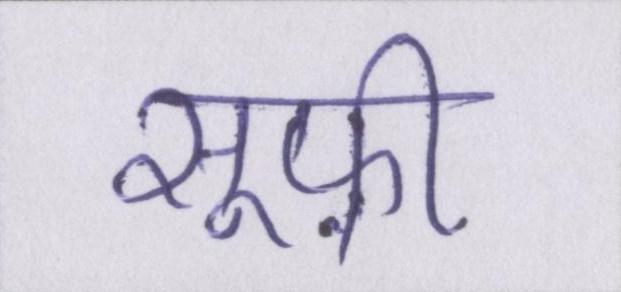 सूफ़ी